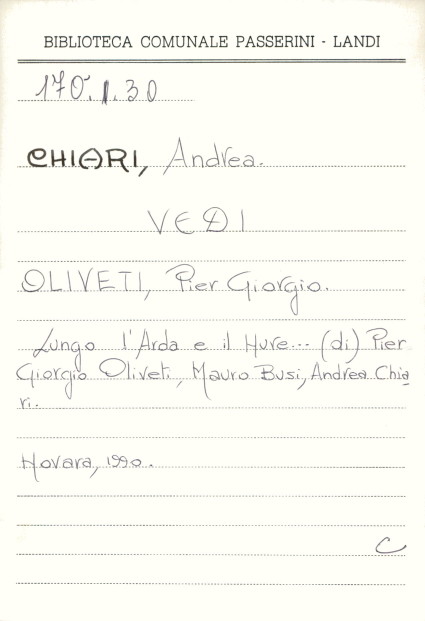 BIBLIOTECA COMUNALE PASSERINI - LANDI
170.1.30
CHIARI, Andrea.
VEDI
OLIVETI, Pier Giorgio.
Lungo l'Arda e il Nure... (di) Pier
Giorgio Oliveti, Mauro Busi, Andrea Chia
ri.
Novara, 1990.
C